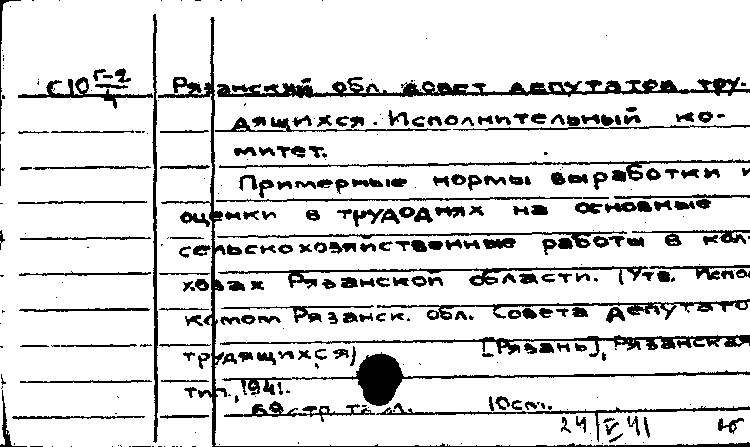 С10 Г-2/4 Рязанский обл. совет депутатов тру-
дящихся. Исполнительный ко-
митет.
Примерные нормы выработки и
оценки в трудоднях на основные
сельскохозяйственные работы в кол-
хозах Рязанской области. (Утв. Испол
комом Рязанск. обл. Совета депутато
трудящихся) [Рязань], Рязанская
тип., 1941.
69 стр. 10 см.
24/V 41